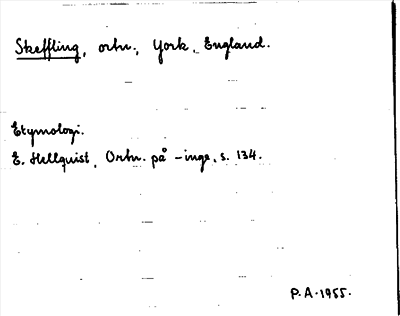 Skeffling, ortn., York, England.
Etymologi.
E. Hellquist, Ortn. på -inge, s. 134.
P.A. 1955.